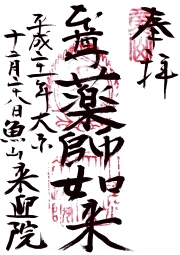 奉拝
本尊薬師如来
平成二十一年大原
十二月二十八日魚山来迎院